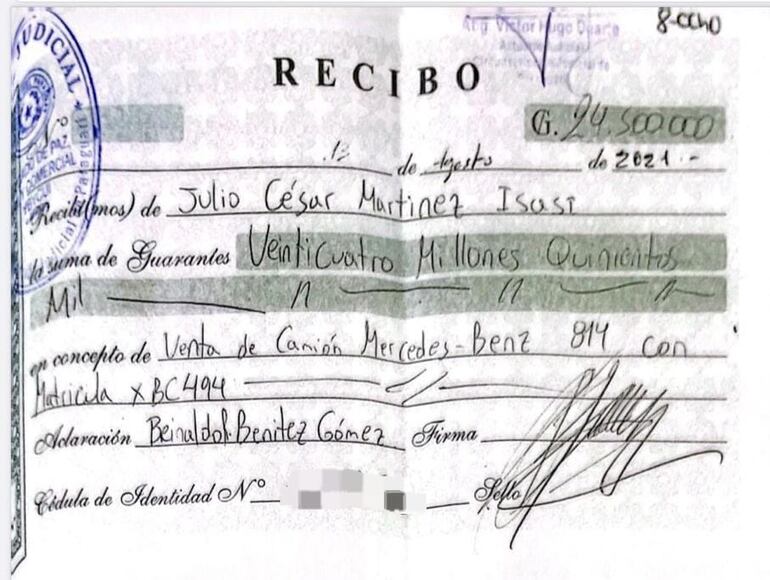 8-ocho
Abg. Victor Hugo Duarte
JUDICIAL
RECIBO
Nº
G. 24.500.000
12 de Agosto de 2021.-
Recibí(mos) de Julio César Martinez Isasi
la suma de Guaraníes Veinticuatro Millones Quinientos
Mil
en concepto de Venta de Camión Mercedes-Benz 814 con
Matricula XBC494
Aclaración Benitez Gómez Firma
Cédula de Identidad Nº Sello